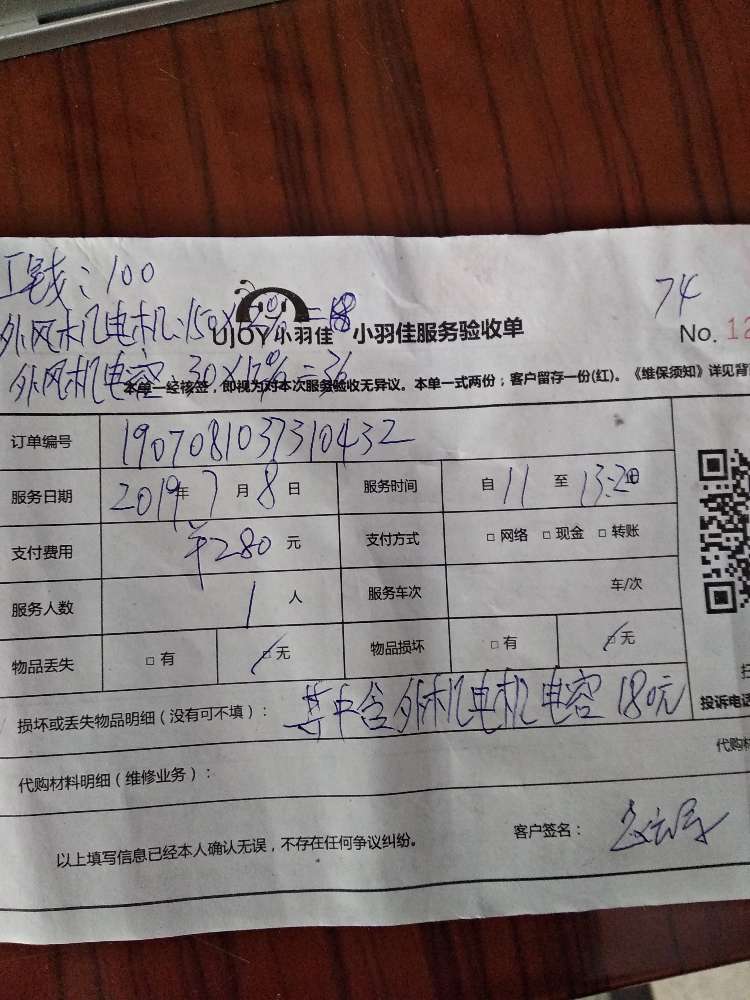 工钱：100
74
外风机电机：150×12%=18
UJOY小羽佳 小羽佳服务验收单
No. 12
外风机电容：30×12%=36
本单一经核签，即视为对本次服务验收无异议。本单一式两份；客户留存一份(红)。《维保须知》详见背
订单编号 1907081037310432
服务日期 2019年7月8日 服务时间 自11至13:20
支付费用 ¥280元 支付方式 □网络 □现金 □转账
服务人数 1人 服务车次 车/次
物品丢失 □有 □无 物品损坏 □有 □无
损坏或丢失物品明细（没有可不填）： 其中含外机电机电容180元
投诉电话
代购材料明细（维修业务）：
代购材
以上填写信息已经本人确认无误，不存在任何争议纠纷。
客户签名：